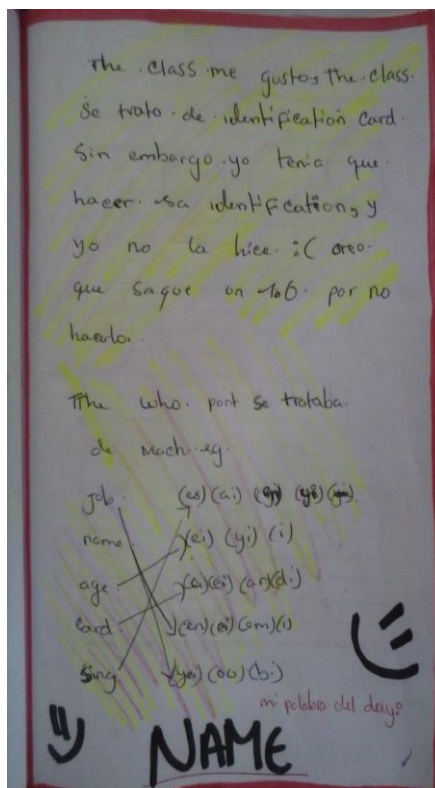 The class me gusto, the class.
Se trato de identification Card.
Sin embargo yo tenia que
hacer sa identification, y
yo no la hice. :( creo
que saque un 1.0. por no
hacerlo.
The who part se trataba
de Mach eg.
job. (es) (ai) (yi)
name (ei) (yi) (i)
age (ei) (ar) (di)
Card (en) (ei) (em) (i)
Sing (yei) (ou) (bi)
mi palabra del day:
NAME